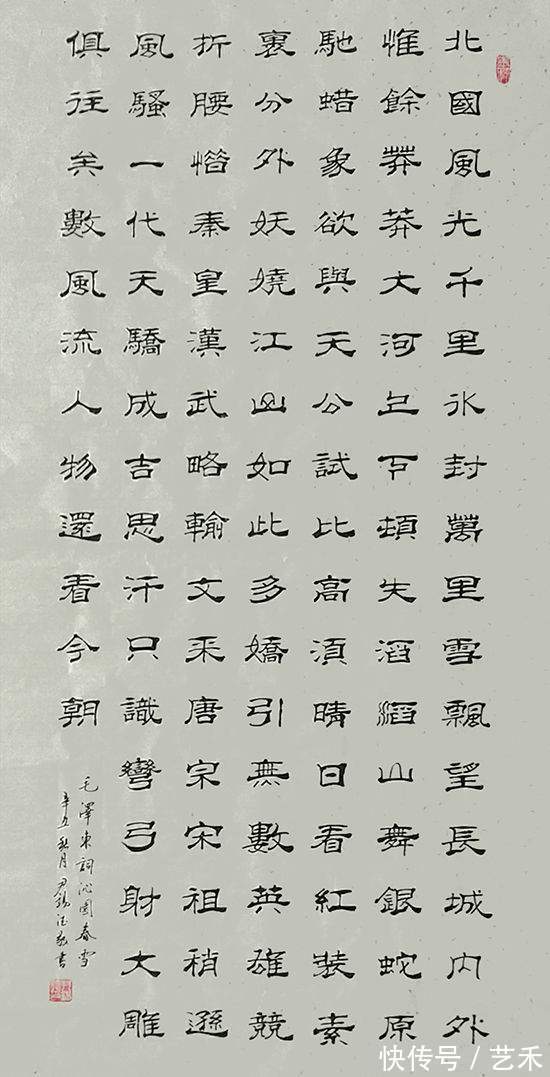 北國風光千里冰封萬里雪飄望長城内外
惟餘莽莽大河上下頓失滔滔山舞銀蛇原
馳蜡象欲與天公試比高須晴日看紅裝素
裹分外妖嬈江山如此多嬌引無數英雄競
折腰惜秦皇漢武略輸文采唐宗宋祖稍遜
風騷一代天驕成吉思汗只識彎弓射大雕
俱往矣數風流人物還看今朝
毛澤東詞沁園春雪
辛丑秋月尹書
快传号/艺禾